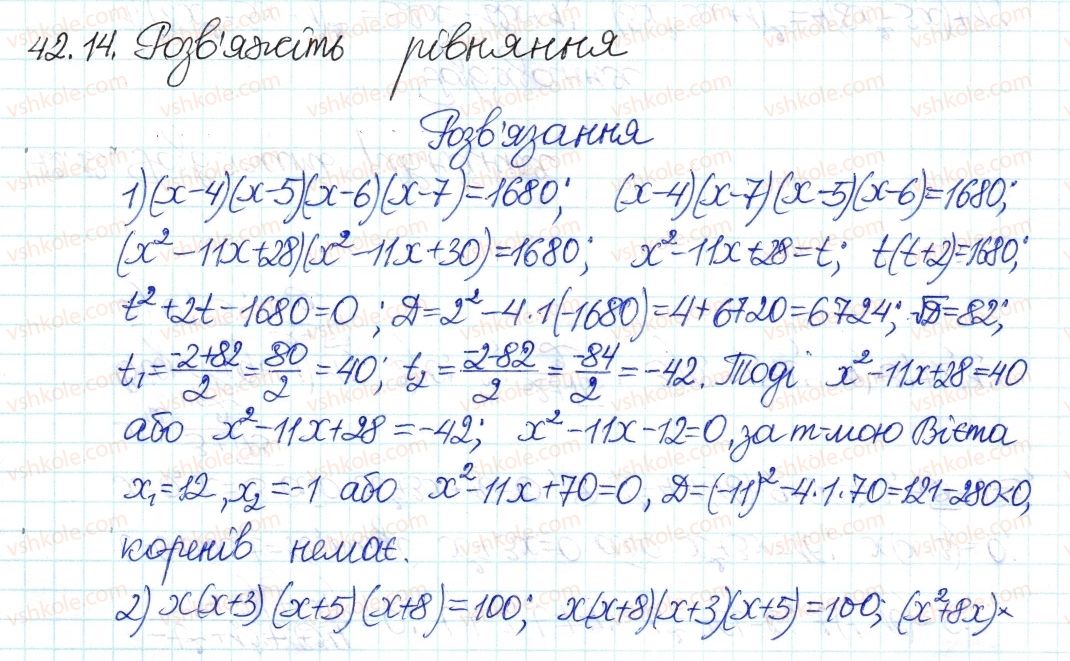 42.14. Розв'яжіть рівняння
Розв'язання
1) (x-4)(x-5)(x-6)(x-7)=1680; (x-4)(x-7)(x-5)(x-6)=1680;
(x²-11x+28)(x²-11x+30)=1680; x²-11x+28=t; t(t+2)=1680;
t²+2t-1680=0; D=2²-4·1(-1680)=4+6720=6724; √D=82;
t₁=(-2+82)/2=80/2=40; t₂=(-2-82)/2=-84/2=-42. Тоді x²-11x+28=40
або x²-11x+28=-42; x²-11x-12=0, за т-мою Вієта
x₁=12, x₂=-1 або x²-11x+70=0, D=(-11)²-4·1·70=121-280<0,
коренів немає.
2) x(x+3)(x+5)(x+8)=100; x(x+8)(x+3)(x+5)=100; (x²+8x)×